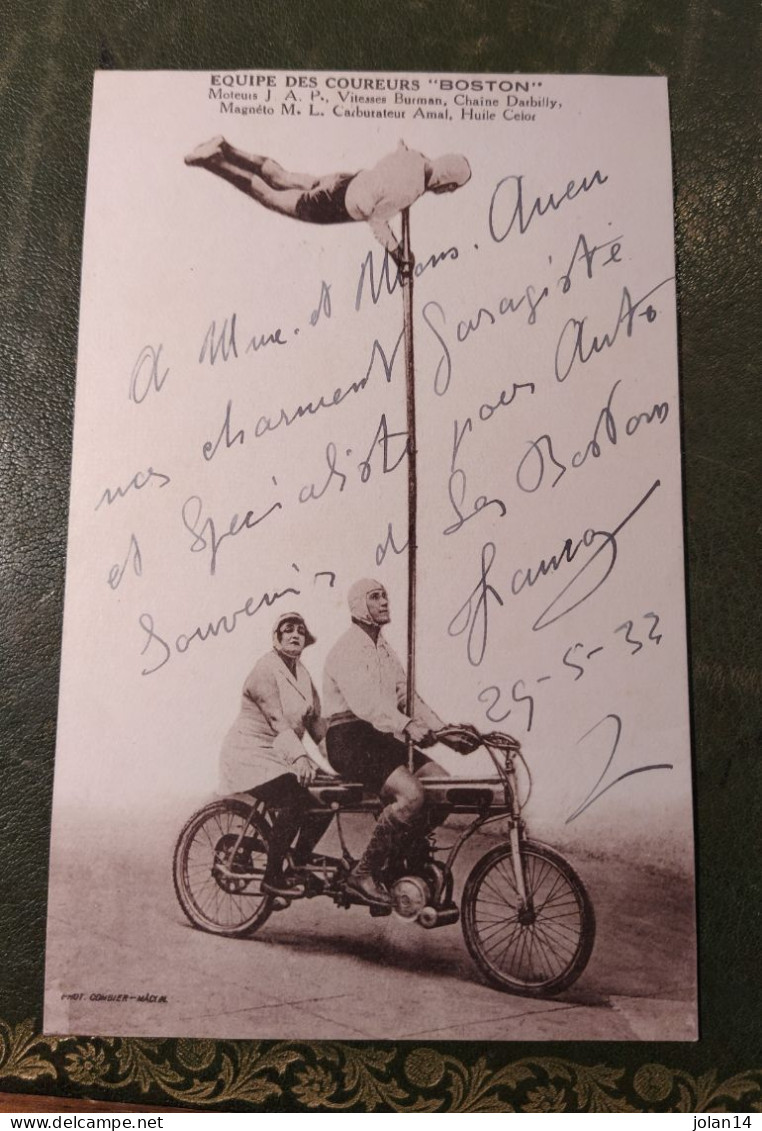 EQUIPE DES COUREURS "BOSTON"
Moteurs J. A. P., Vitesses Burman, Chaîne Darbilly,
Magnéto M. L. Carburateur Amal, Huile Celor
A Mme. et Mons.
nos charment Garagiste
et Spécialiste pour Auto
Souvenir des Les Boston
29-5-32
PHOT. COMBIER-MÂCON
jolan14